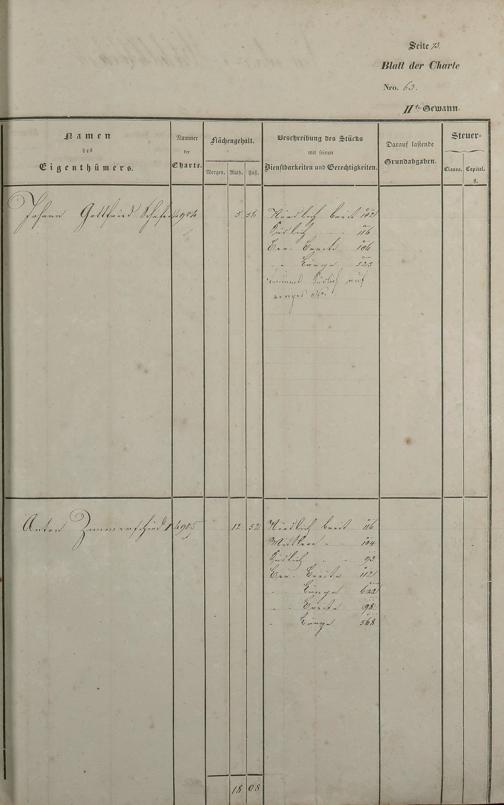 Seite 13.
Blatt der Charte
Nro. 63.
IIte Gewann.
Namen des Eigenthümers.
Nummer der Charte.
Flächengehalt.
Morgen. Ruth. Fuß.
Beschreibung des Stücks mit seinen Dienstbarkeiten und Gerechtigkeiten.
Darauf lastende Grundabgaben.
Steuer-
Classe. Capital.
fl.
Johann Gottfried Schäfer 5 56 Nördlich breit
Südlich - 116
Ber. Breite 106
- Länge 525
Südlich auf
Anton Zimmerschied 12 52 Nördlich breit 116
Mittlere - 104
Südlich - 92
Ber. Breite 112
- Länge 622
- Breite 98
- Länge 568
18 08